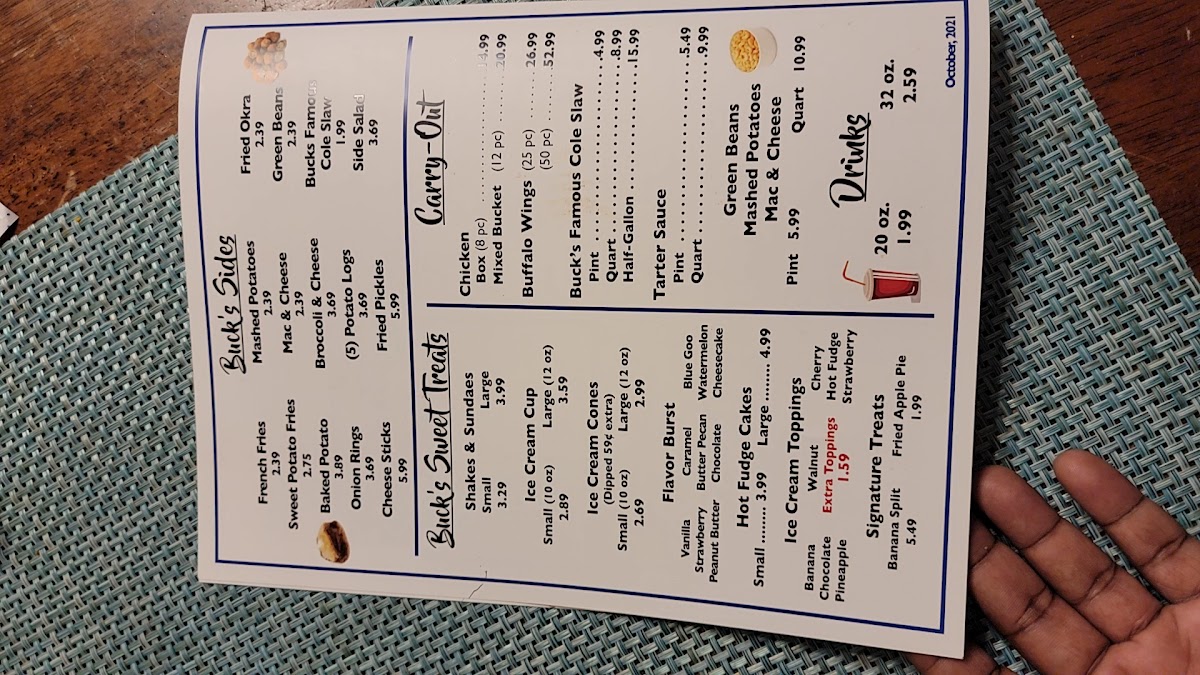 Buck's Sides
French Fries
2.39
Sweet Potato Fries
2.75
Baked Potato
3.89
Onion Rings
3.69
Cheese Sticks
5.99
Mashed Potatoes
2.39
Mac & Cheese
2.39
Broccoli & Cheese
3.69
(5) Potato Logs
3.69
Fried Pickles
5.99
Fried Okra
2.39
Green Beans
2.39
Bucks Famous
Cole Slaw
1.99
Side Salad
3.69
Buck's Sweet Treats
Shakes & Sundaes
Small Large
3.29 3.99
Ice Cream Cup
Small (10 oz) Large (12 oz)
2.89 3.59
Ice Cream Cones
(Dipped 59¢ extra)
Small (10 oz) Large (12 oz)
2.69 2.99
Flavor Burst
Vanilla Caramel Blue Goo
Strawberry Butter Pecan Watermelon
Peanut Butter Chocolate Cheesecake
Hot Fudge Cakes
Small ......... 3.99 Large ......... 4.99
Ice Cream Toppings
Banana Walnut Cherry
Chocolate Extra Toppings Hot Fudge
Pineapple 1.59 Strawberry
Signature Treats
Banana Split Fried Apple Pie
5.49 1.99
Carry-Out
Chicken
Box (8 pc) ..................... 14.99
Mixed Bucket (12 pc) ......... 20.99
Buffalo Wings (25 pc) ........ 26.99
(50 pc) ........ 52.99
Buck's Famous Cole Slaw
Pint ........................... 4.99
Quart ......................... 8.99
Half-Gallon .................. 15.99
Tarter Sauce
Pint ........................... 5.49
Quart ......................... 9.99
Green Beans
Mashed Potatoes
Mac & Cheese
Pint 5.99 Quart 10.99
Drinks
20 oz. 32 oz.
1.99 2.59
October, 2021